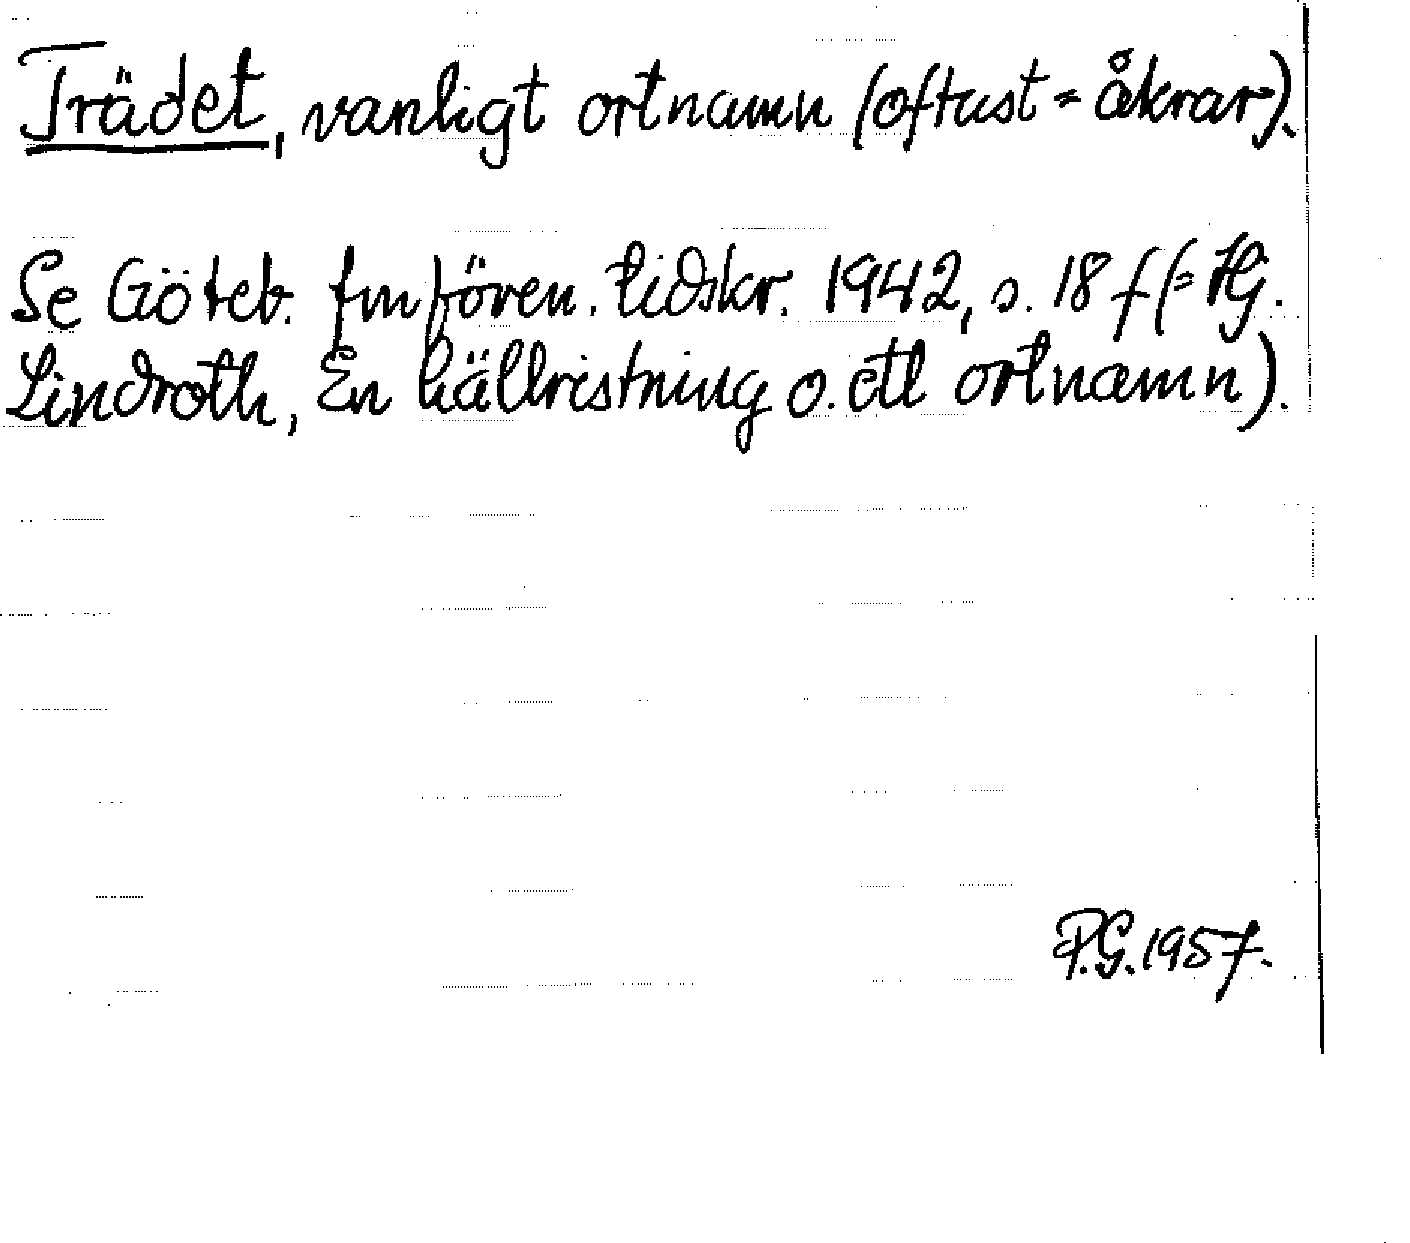 Trädet, vanligt ortnamn (oftast = åkrar).
Se Göteb. fmfören. tidskr. 1942, s. 18 f (= Hj.
Lindroth, En hällristning o. ett ortnamn).
P.G. 1957.